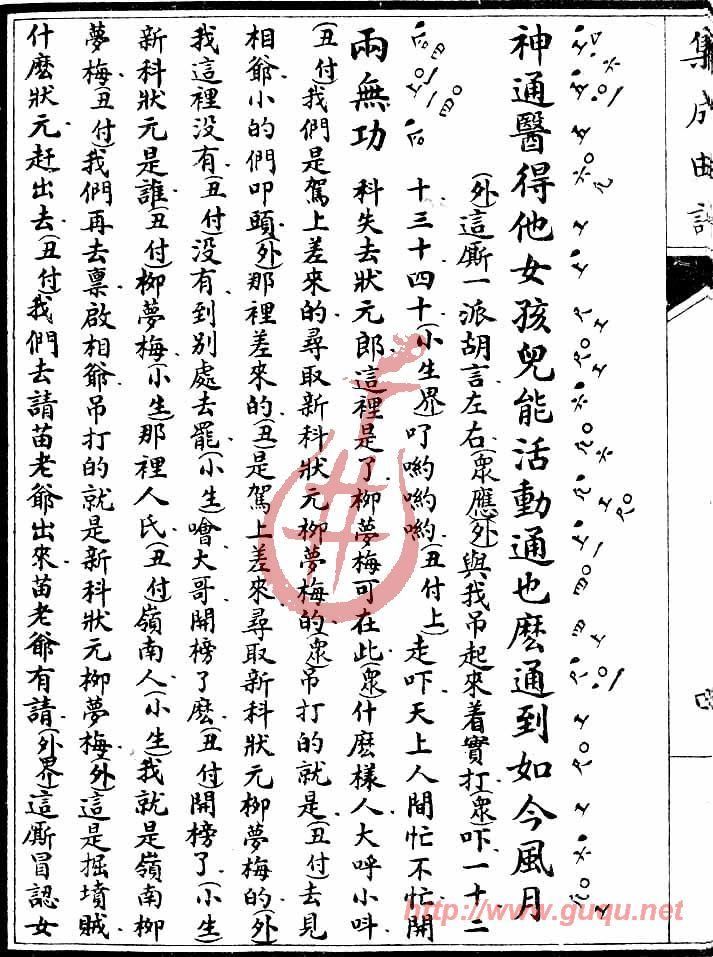 集成曲譜
神通醫得他女孩兒能活動通也麽通到如今風月
(外)這厮一派胡言左右(衆應)(外)與我吊起來着實打(衆)吓一十二
十三十四十(小生界)吖喲喲喲(丑付上)走吓天上人間忙不忙開
兩無功
科失去狀元郎這裡是了柳夢梅可在此(衆)什麽樣人大呼小呌
(丑付)我們是駕上差來的尋取新科狀元柳夢梅的(衆)吊打的就是(丑付)去見
相爺小的們叩頭(外)那裡差來的(丑)是駕上差來尋取新科狀元柳夢梅的(外)
我這裡没有(丑付)没有到别處去罷(小生)噲大哥開榜了麽(丑付)開榜了(小生)
新科狀元是誰(丑付)柳夢梅(小生)那裡人氏(丑付)嶺南人(小生)我就是嶺南柳
夢梅(丑付)我們再去禀啟相爺吊打的就是新科狀元柳夢梅(外)這是掘墳賊
什麽狀元赶出去(丑付)我們去請苗老爺出來苗老爺有請(外界)這厮冒認女
http://www.guqu.net